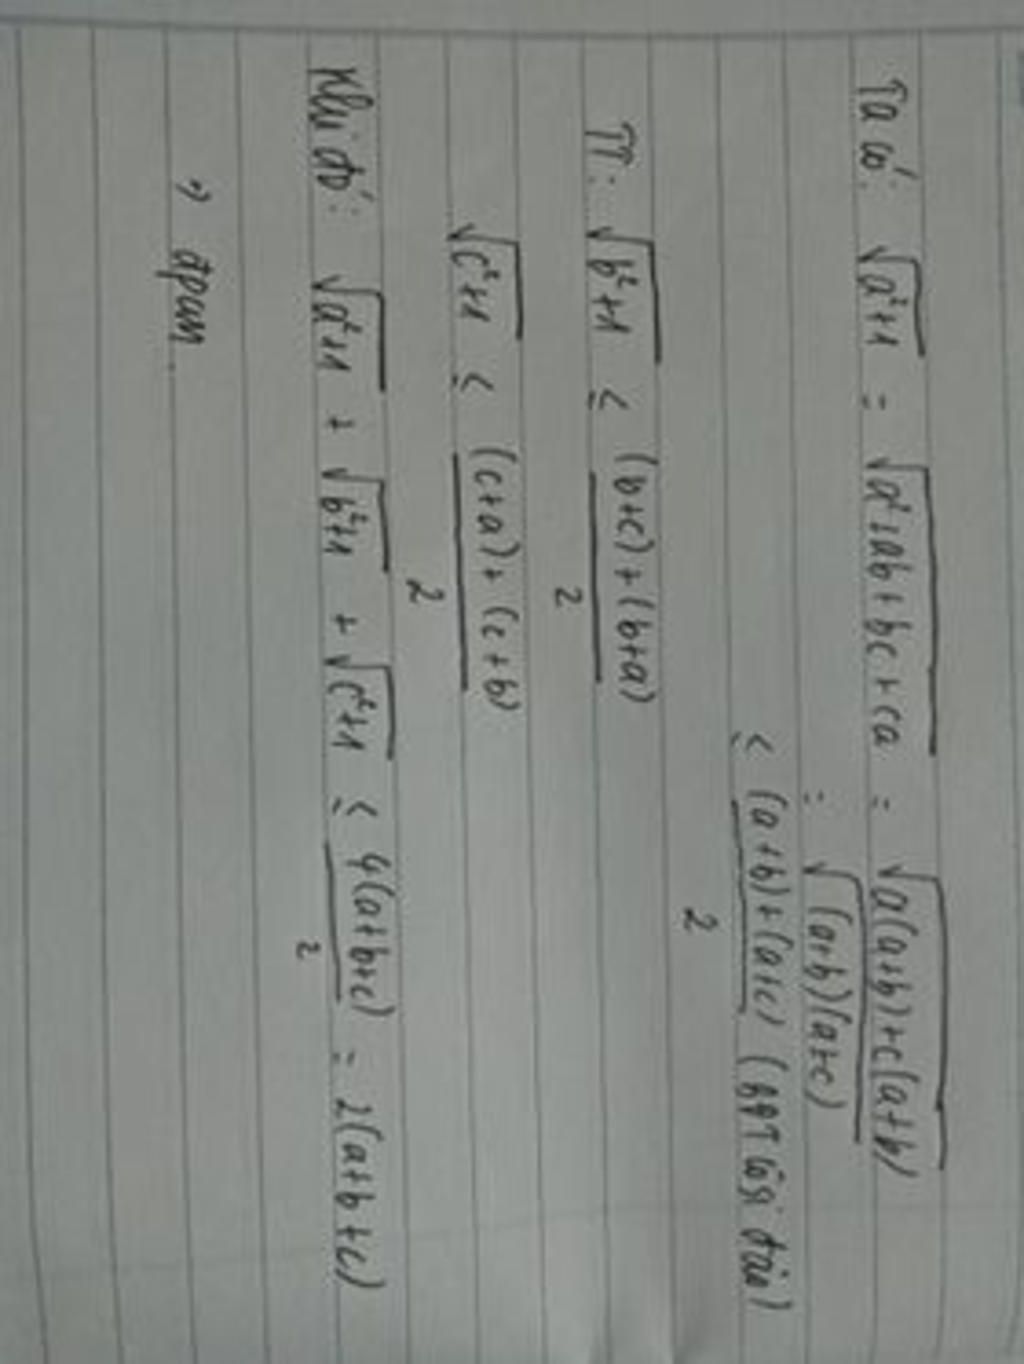 Ta có: √(a²+1) = √(a²+ab+bc+ca) = √(a(a+b)+c(a+b))
= √((a+b)(a+c))
≤ ((a+b)+(a+c))/2 (BĐT Côsi đảo)
TT: √(b²+1) ≤ ((b+c)+(b+a))/2
√(c²+1) ≤ ((c+a)+(c+b))/2
Khi đó: √(a²+1) + √(b²+1) + √(c²+1) ≤ 4(a+b+c)/2 = 2(a+b+c)
=) đpcm.